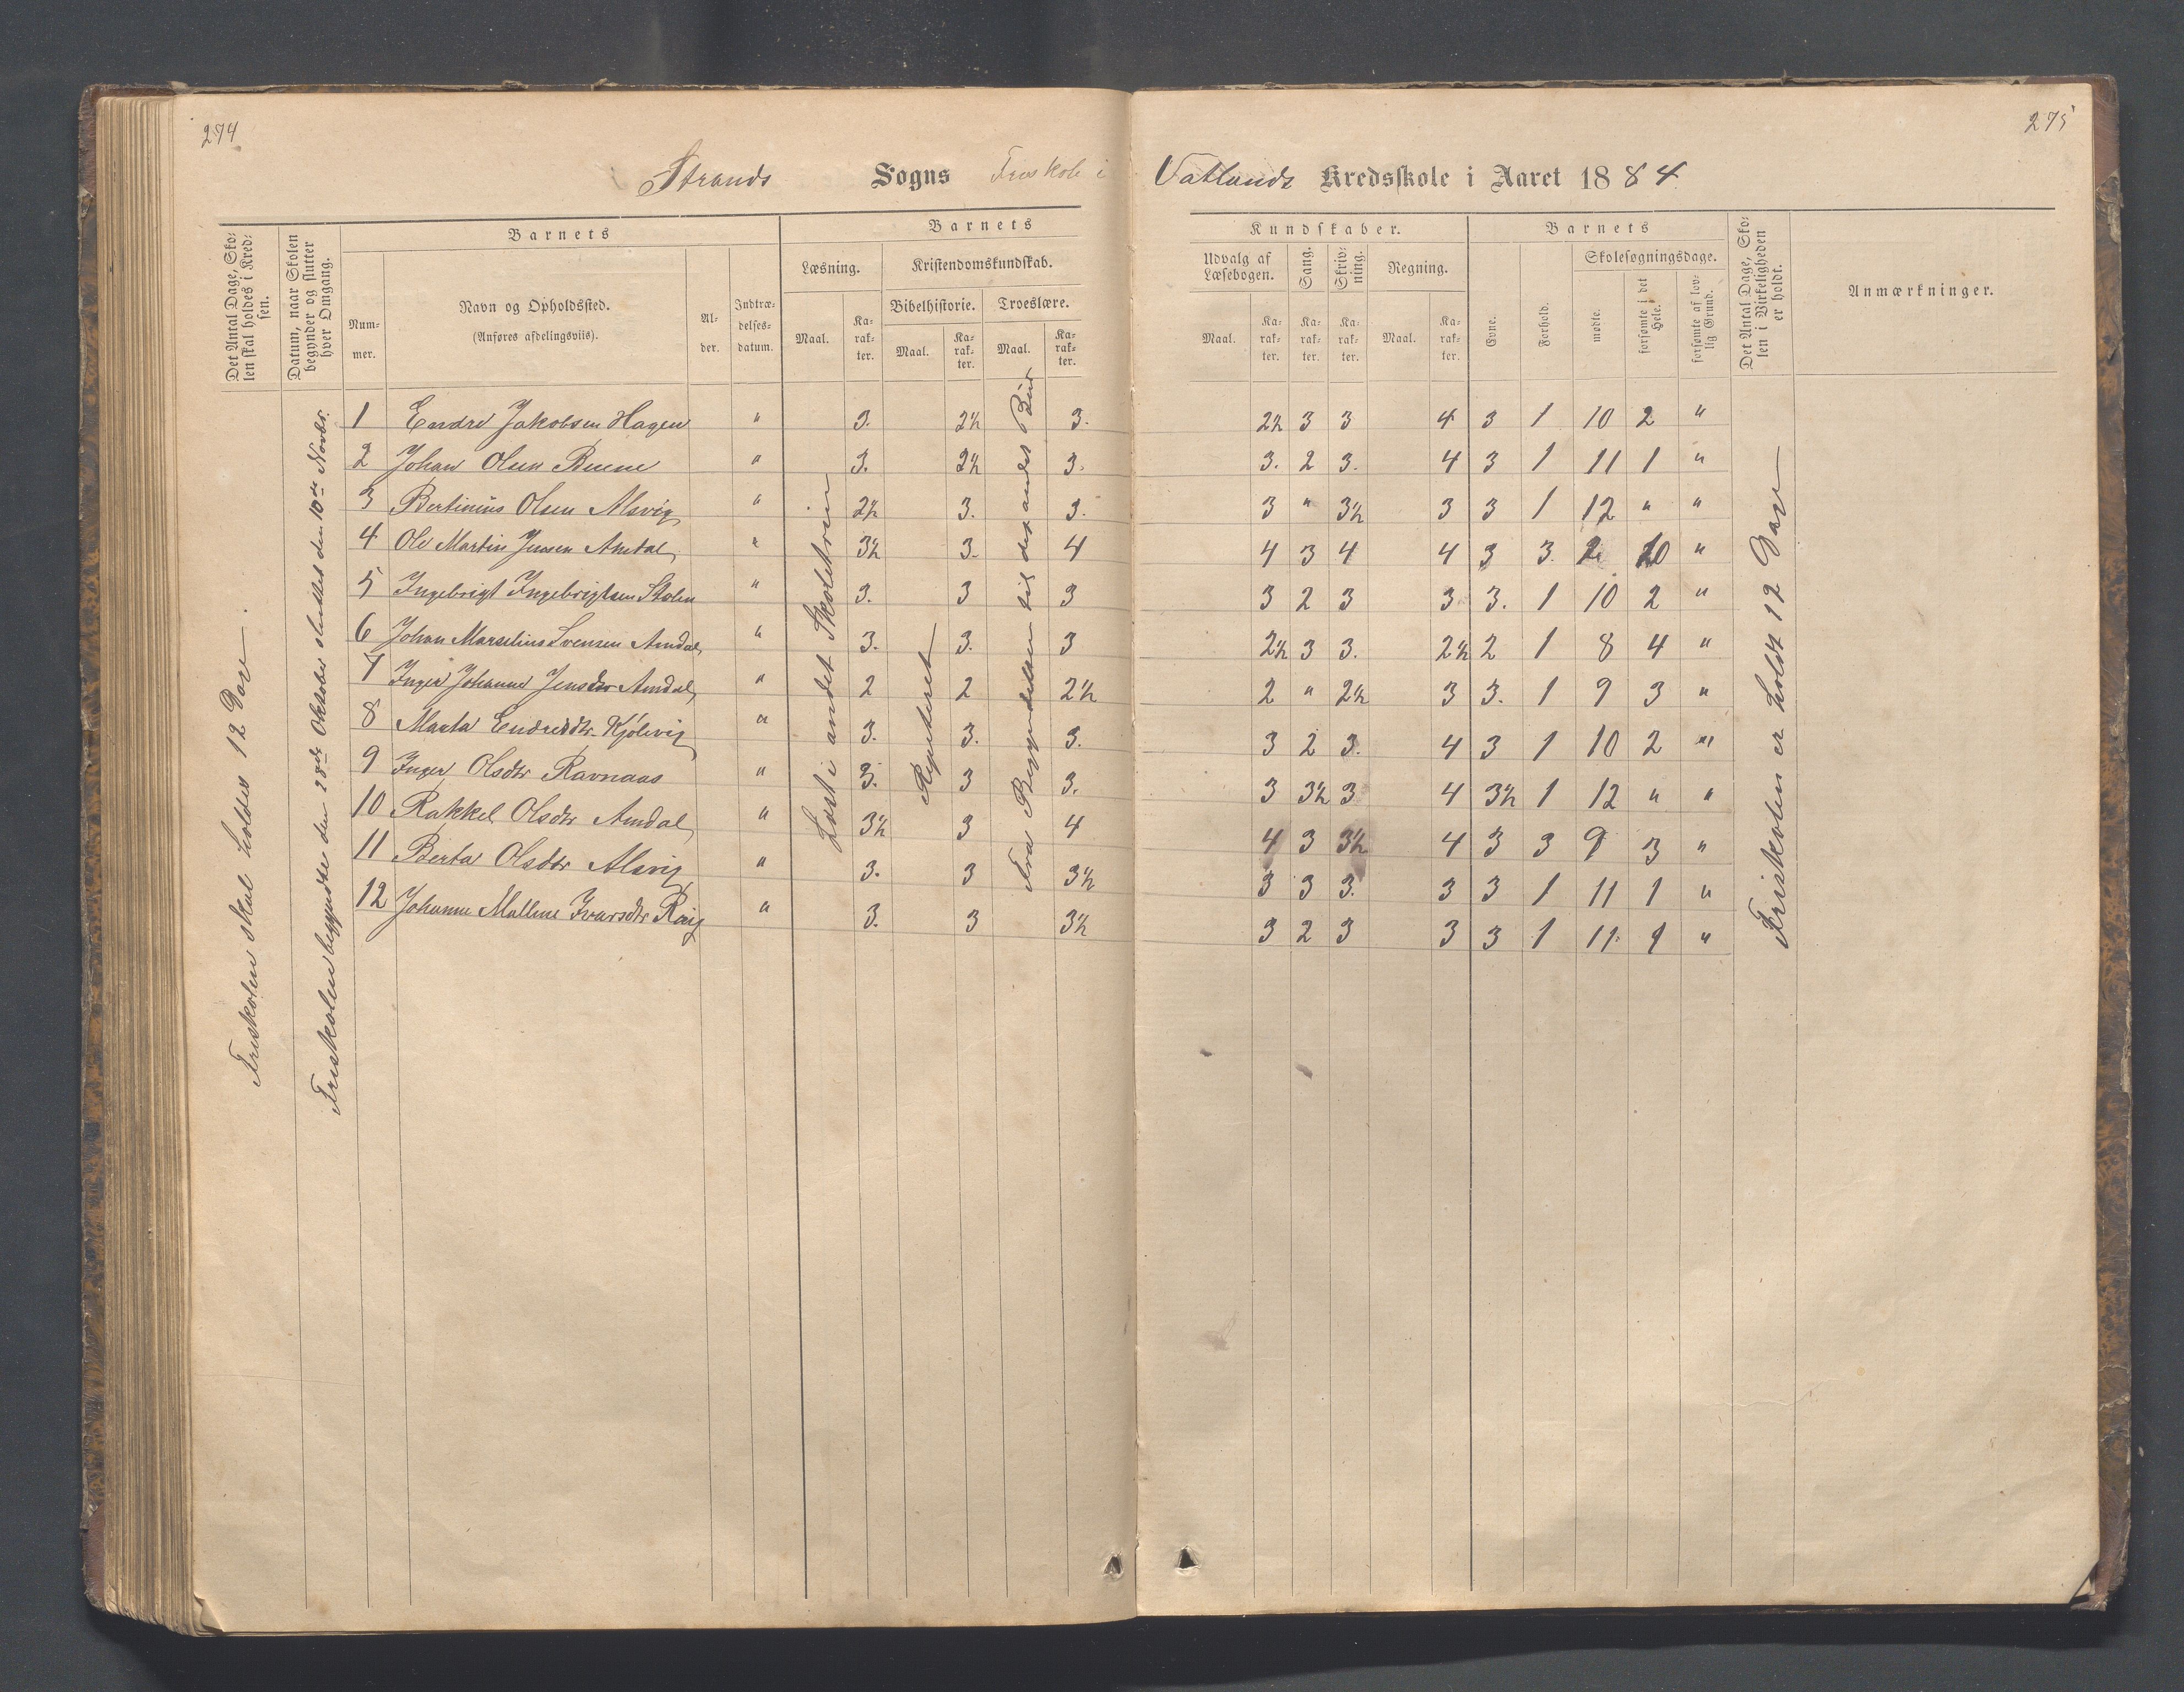 274
275
Strands Sogns Friskole i Vatlands Kredsskole i Aaret 1884
Det Antal Dage, Sko-
len skal holdes i Kred-
sen.
Datum, naar Skolen
begynder og slutter
hver Omgang.
Barnets
Num-
mer.
Navn og Opholdssted.
(Anføres afdelingsviis).
Al-
der.
Indtræ-
delses-
datum.
Barnets
Læsning.
Maal.
Ka-
rak-
ter.
Kristendomskundskab.
Bibelhistorie.
Maal.
Ka-
rak-
ter.
Troeslære.
Maal.
Ka-
rak-
ter.
Kundskaber.
Udvalg af
Læsebogen.
Maal.
Ka-
rak-
ter.
Sang.
Ka-
rak-
ter.
Skriv-
ning.
Ka-
rak-
ter.
Regning.
Maal.
Ka-
rak-
ter.
Barnets
Evne.
Forhold.
Skolesøgningsdage.
mødte.
forsømte i det
Hele.
forsømte af lov-
lig Grund.
Det Antal Dage, Sko-
len i Virkeligheden
er holdt.
Anmærkninger.
Friskolen skal holdes 12 Dage
Friskolen begyndte den 28de Oktober sluttet den 10de Novbr.
1 Endre Jakobsen Hagen " 3. 2½ 3. 2½ 3 3 4 3 1 10 2 "
2 Johan Olsen " 3. 2½ 3. 3. 2 3. 4 3 1 11 1 "
3 Bertinius Olsen Alsvig " 2½ 3. 3. 3 " 3½ 3 3 1 12 " "
4 Ole Martin Jensen Amdal " 3½ 3. 4 4 3 4 4 3 3. 2 10 "
5 Ingebrigt Ingebrigtsen Stolen " 3. 3 3 3 2 3 3 3. 1 10 2 "
6 Johan Marselius Svensen Amdal " 3. 3. 3 2½ 3 3. 2½ 2 1 8 4 "
7 Inger Johanne Jensdtr Amdal " 2 2 2½ 2 " 2½ 3 3. 1 9 3 "
8 Marta Endresdtr. Kjølevig " 3. 3. 3. 3 2 3. 4 3 1 10 2 "
9 Inger Olsdtr Ravnaas " 3. 3 3. 3 3½ 3 4 3½ 1 12 " "
10 Rakkel Olsdtr Amdal " 3½ 3 4 4 3 3½ 4 3 3 9 3 "
11 Berta Olsdtr Alsvig " 3. 3 3½ 3 3 3. 3 3 1 11 1 "
12 Johanne Malline Ivarsdtr " 3. 3 3½ 3 2 3 3 3 1 11 1 "
Læst i andet Skoletrin
Repeteret
Fra Begyndelsen til det andet Bud
Friskolen er holdt 12 Dage